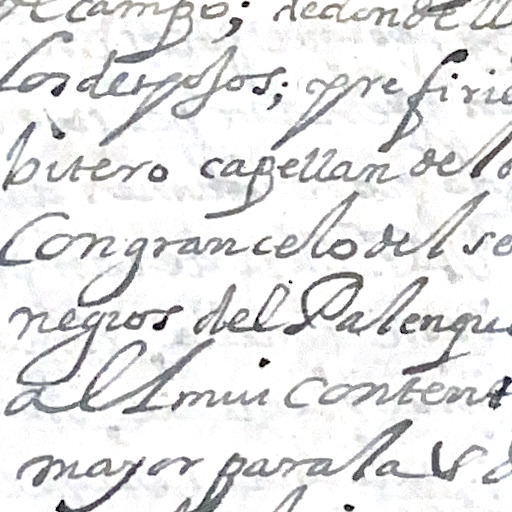 de campo; de donde ll
los despojos; prefirie
bitero capellan del
Con gran celo del se
negros del Palenque
allí mui content
mayor para la